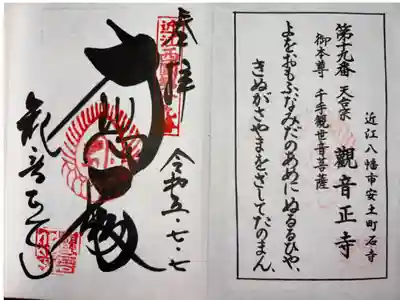 近江八幡市安土町石寺
第十九番 天台宗 觀音正寺
御本尊 千手観世音菩薩
よをおもふなみだのあめにぬるるひや、
きぬがさやまをさしてたのまん、
奉拝
令和五・七・七
大悲殿
観音正寺
近江西国